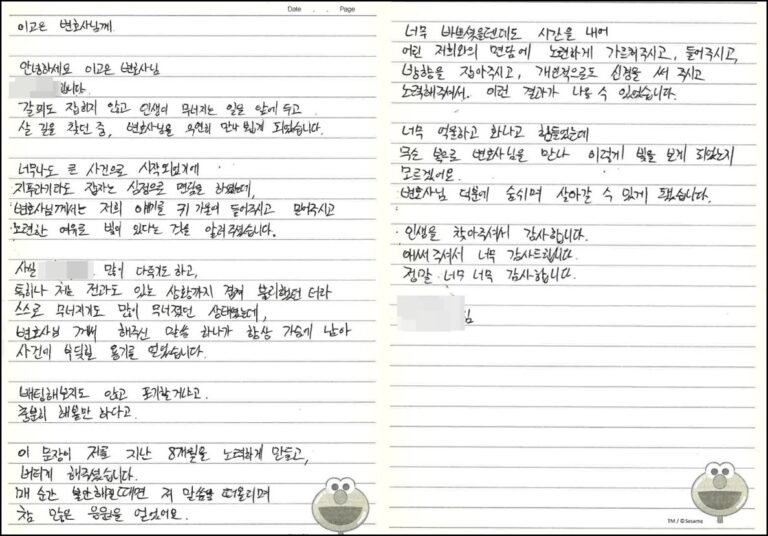 Date . . Page
이고은 변호사님께.
안녕하세요 이고은 변호사님
입니다.
갈피도 잡히지 않고 인생이 무너지는 일을 앞에 두고
살 길을 찾던 중, 변호사님을 우연히 만나 뵙게 되었습니다.
너무나도 큰 사건으로 시작되었기에
지푸라기라도 잡자는 심정으로 면담을 하였는데,
변호사님께서는 저희 얘기를 귀 기울여 들어주시고 믿어주시고
노련한 여유로 빛이 있다는 것을 알려주셨습니다.
사실 많이 다투기도 하고,
특히나 저는 전과도 있는 상황까지 겹쳐 불리했던 터라
스스로 무너지기도 많이 무너졌던 상태였는데,
변호사님께서 해주신 말씀 하나가 항상 가슴에 남아
사건에 부딪힐 용기를 얻었습니다.
배팅해보지도 않고 포기할거냐고.
충분히 해볼만 하다고.
이 문장이 저를 지난 8개월을 노력하게 만들고,
버티게 해주셨습니다.
매 순간 불안해질때면 저 말씀을 떠올리며
참 많은 응원을 얻었어요.
너무 바쁘셨을텐데도 시간을 내어
어린 저희와의 면담에 노련하게 가르쳐주시고, 들어주시고,
방향을 잡아주시고, 개인적으로도 신경을 써 주시고
노력해주셔서. 이런 결과가 나올 수 있었습니다.
너무 억울하고 화나고 힘들었는데
무슨 복으로 변호사님을 만나 이렇게 빛을 보게 되었는지
모르겠어요.
변호사님 덕분에 숨쉬며 살아갈 수 있게 됐습니다.
인생을 찾아주셔서 감사합니다.
애써주셔서 너무 감사드립니다.
정말 너무 너무 감사합니다.
TM / ©Sesame